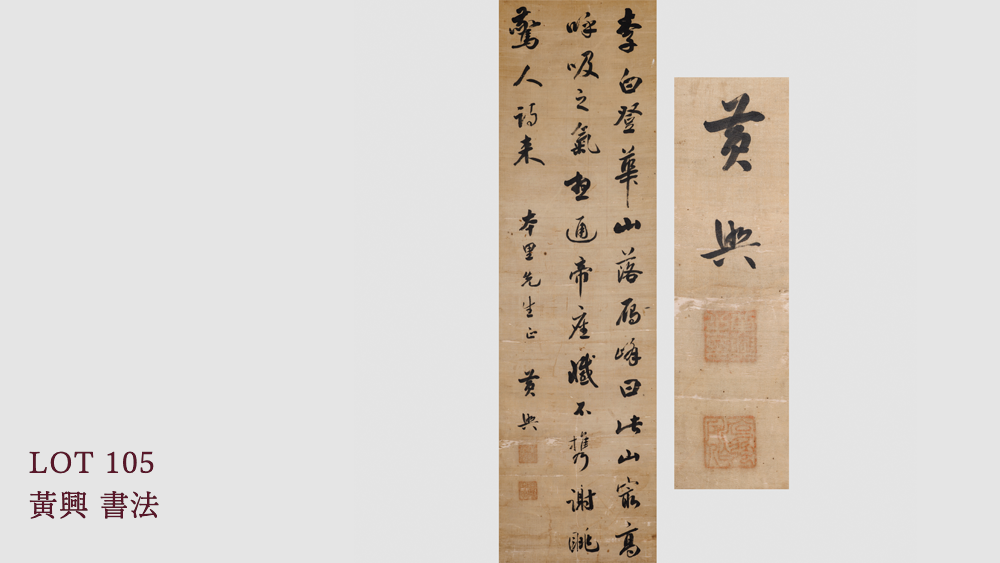 李白登華山落鴈峰曰此山最高
呼吸之氣想通帝座憾不携謝眺
驚人詩来 本里先生正 黄興
黄興
LOT 105
黃興 書法